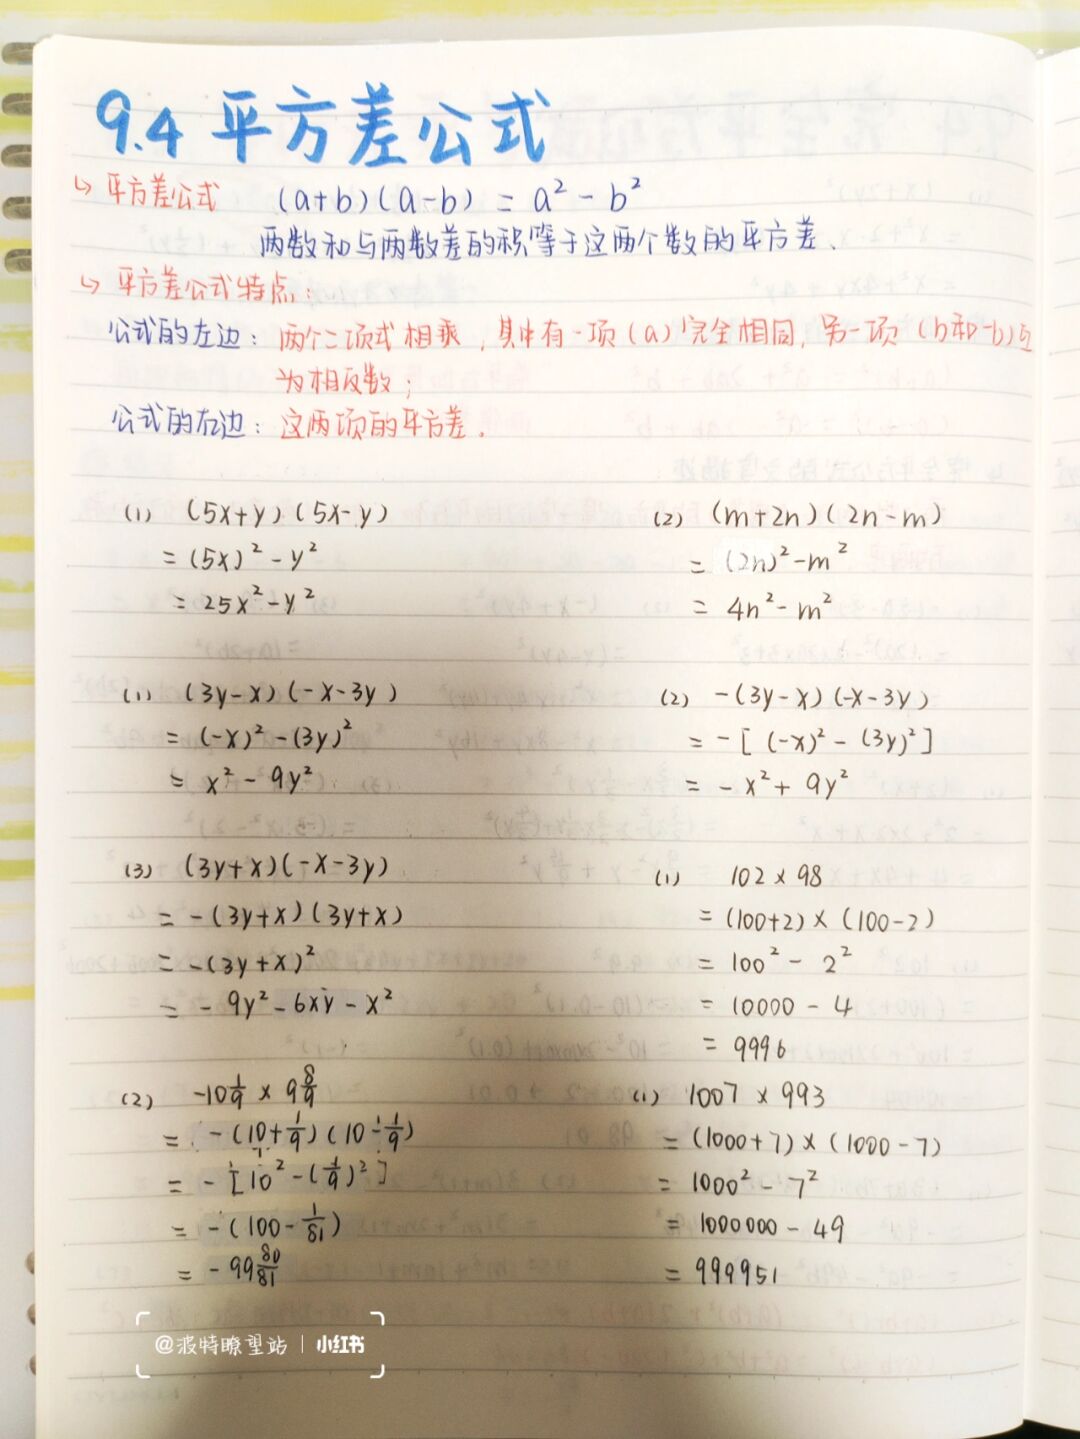 9.4 平方差公式
↳ 平方差公式 (a+b)(a-b) = a² - b²
两数和与两数差的积等于这两个数的平方差.
↳ 平方差公式特点:
公式的左边: 两个二项式相乘, 其中有一项(a)完全相同, 另一项(b和-b)互
为相反数;
公式的右边: 这两项的平方差.
(1) (5x+y)(5x-y)
= (5x)² - y²
= 25x² - y²
(2) (m+2n)(2n-m)
= (2n)² - m²
= 4n² - m²
(1) (3y-x)(-x-3y)
= (-x)² - (3y)²
= x² - 9y²
(2) -(3y-x)(-x-3y)
= -[(-x)² - (3y)²]
= -x² + 9y²
(3) (3y+x)(-x-3y)
= -(3y+x)(3y+x)
= -(3y+x)²
= -9y² - 6xy - x²
(1) 102 × 98
= (100+2) × (100-2)
= 100² - 2²
= 10000 - 4
= 9996
(2) -10 1/9 × 9 8/9
= -(10+1/9)(10-1/9)
= -[10² - (1/9)²]
= -(100 - 1/81)
= -99 80/81
(1) 1007 × 993
= (1000+7) × (1000-7)
= 1000² - 7²
= 1000000 - 49
= 999951
@波特瞭望站 | 小红书